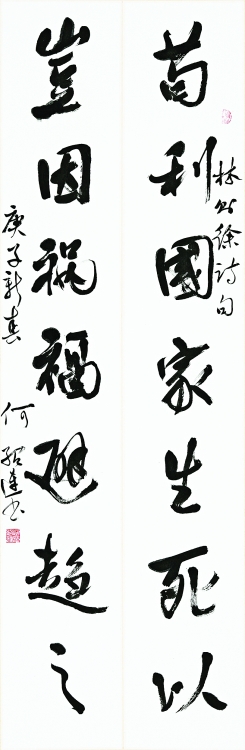 苟利國家生死以
林則徐詩句
豈因禍福避趨之
庚子新春 何紹連書